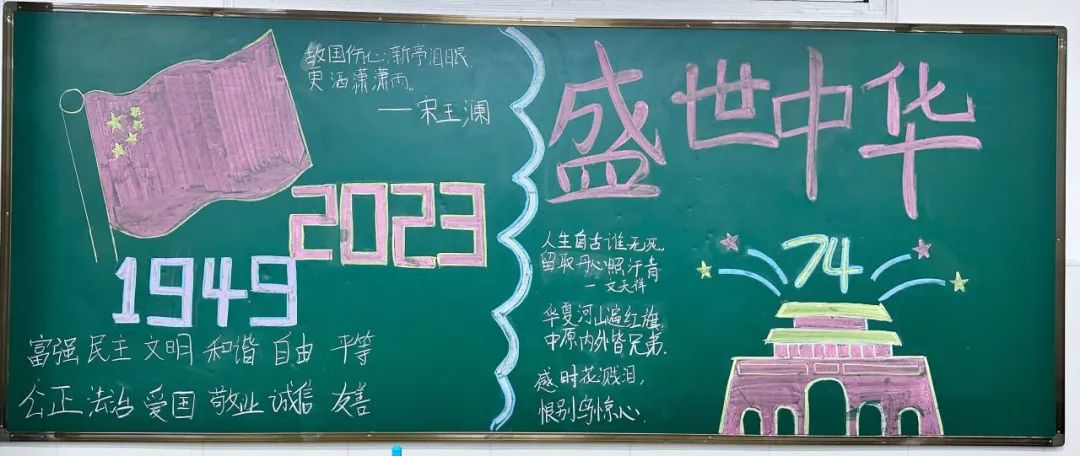 故国伤心,新亭泪眼,
更洒潇潇雨。
——宋王澜
2023
1949
富强 民主 文明 和谐 自由 平等
公正 法治 爱国 敬业 诚信 友善
盛世中华
74
人生自古谁无死,
留取丹心照汗青
—文天祥
华夏河山遍红旗,
中原内外皆兄弟.
感时花溅泪,
恨别鸟惊心.